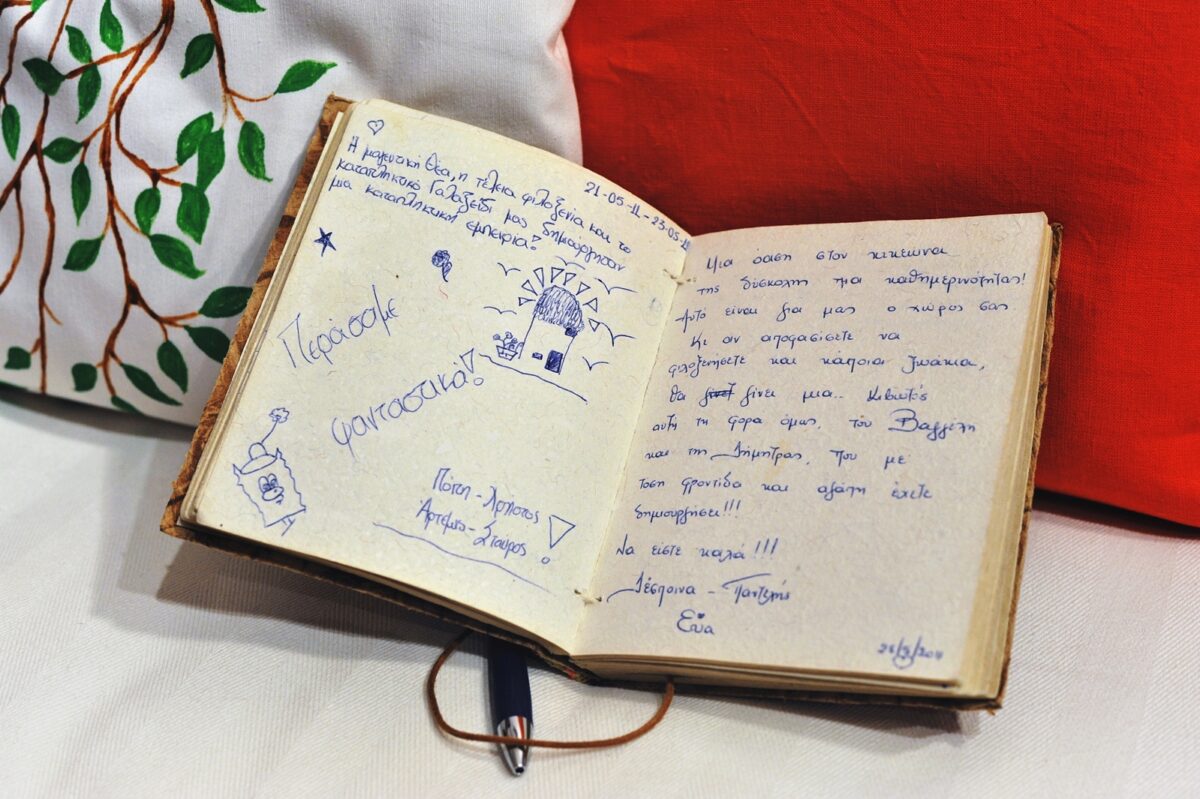 21-05-11 - 23-05-11
Η μαγευτική θέα, η τέλεια φιλοξενία και το
καταπληκτικό Γαλαξείδι μας δημιούργησαν
μια καταπληκτική εμπειρία!
Περάσαμε
φανταστικά!
Πόπη - Χρήστος
Άρτεμις - Σταύρος
Μια όαση στον κυκεώνα
της δύσκολης μας καθημερινότητας!
Αυτό είναι για μας ο χώρος σας
Κι αν αποφασίσετε να
φιλοξενήσετε και κάποια ζωάκια,
θα γίνει μια.. Κιβωτός
αυτή τη φορά όμως, του Βαγγέλη
και της Δήμητρας, που με
τόση φροντίδα και αγάπη έχετε
δημιουργήσει!!!
Να είστε καλά!!!
Δέσποινα - Παντελής
Εύα